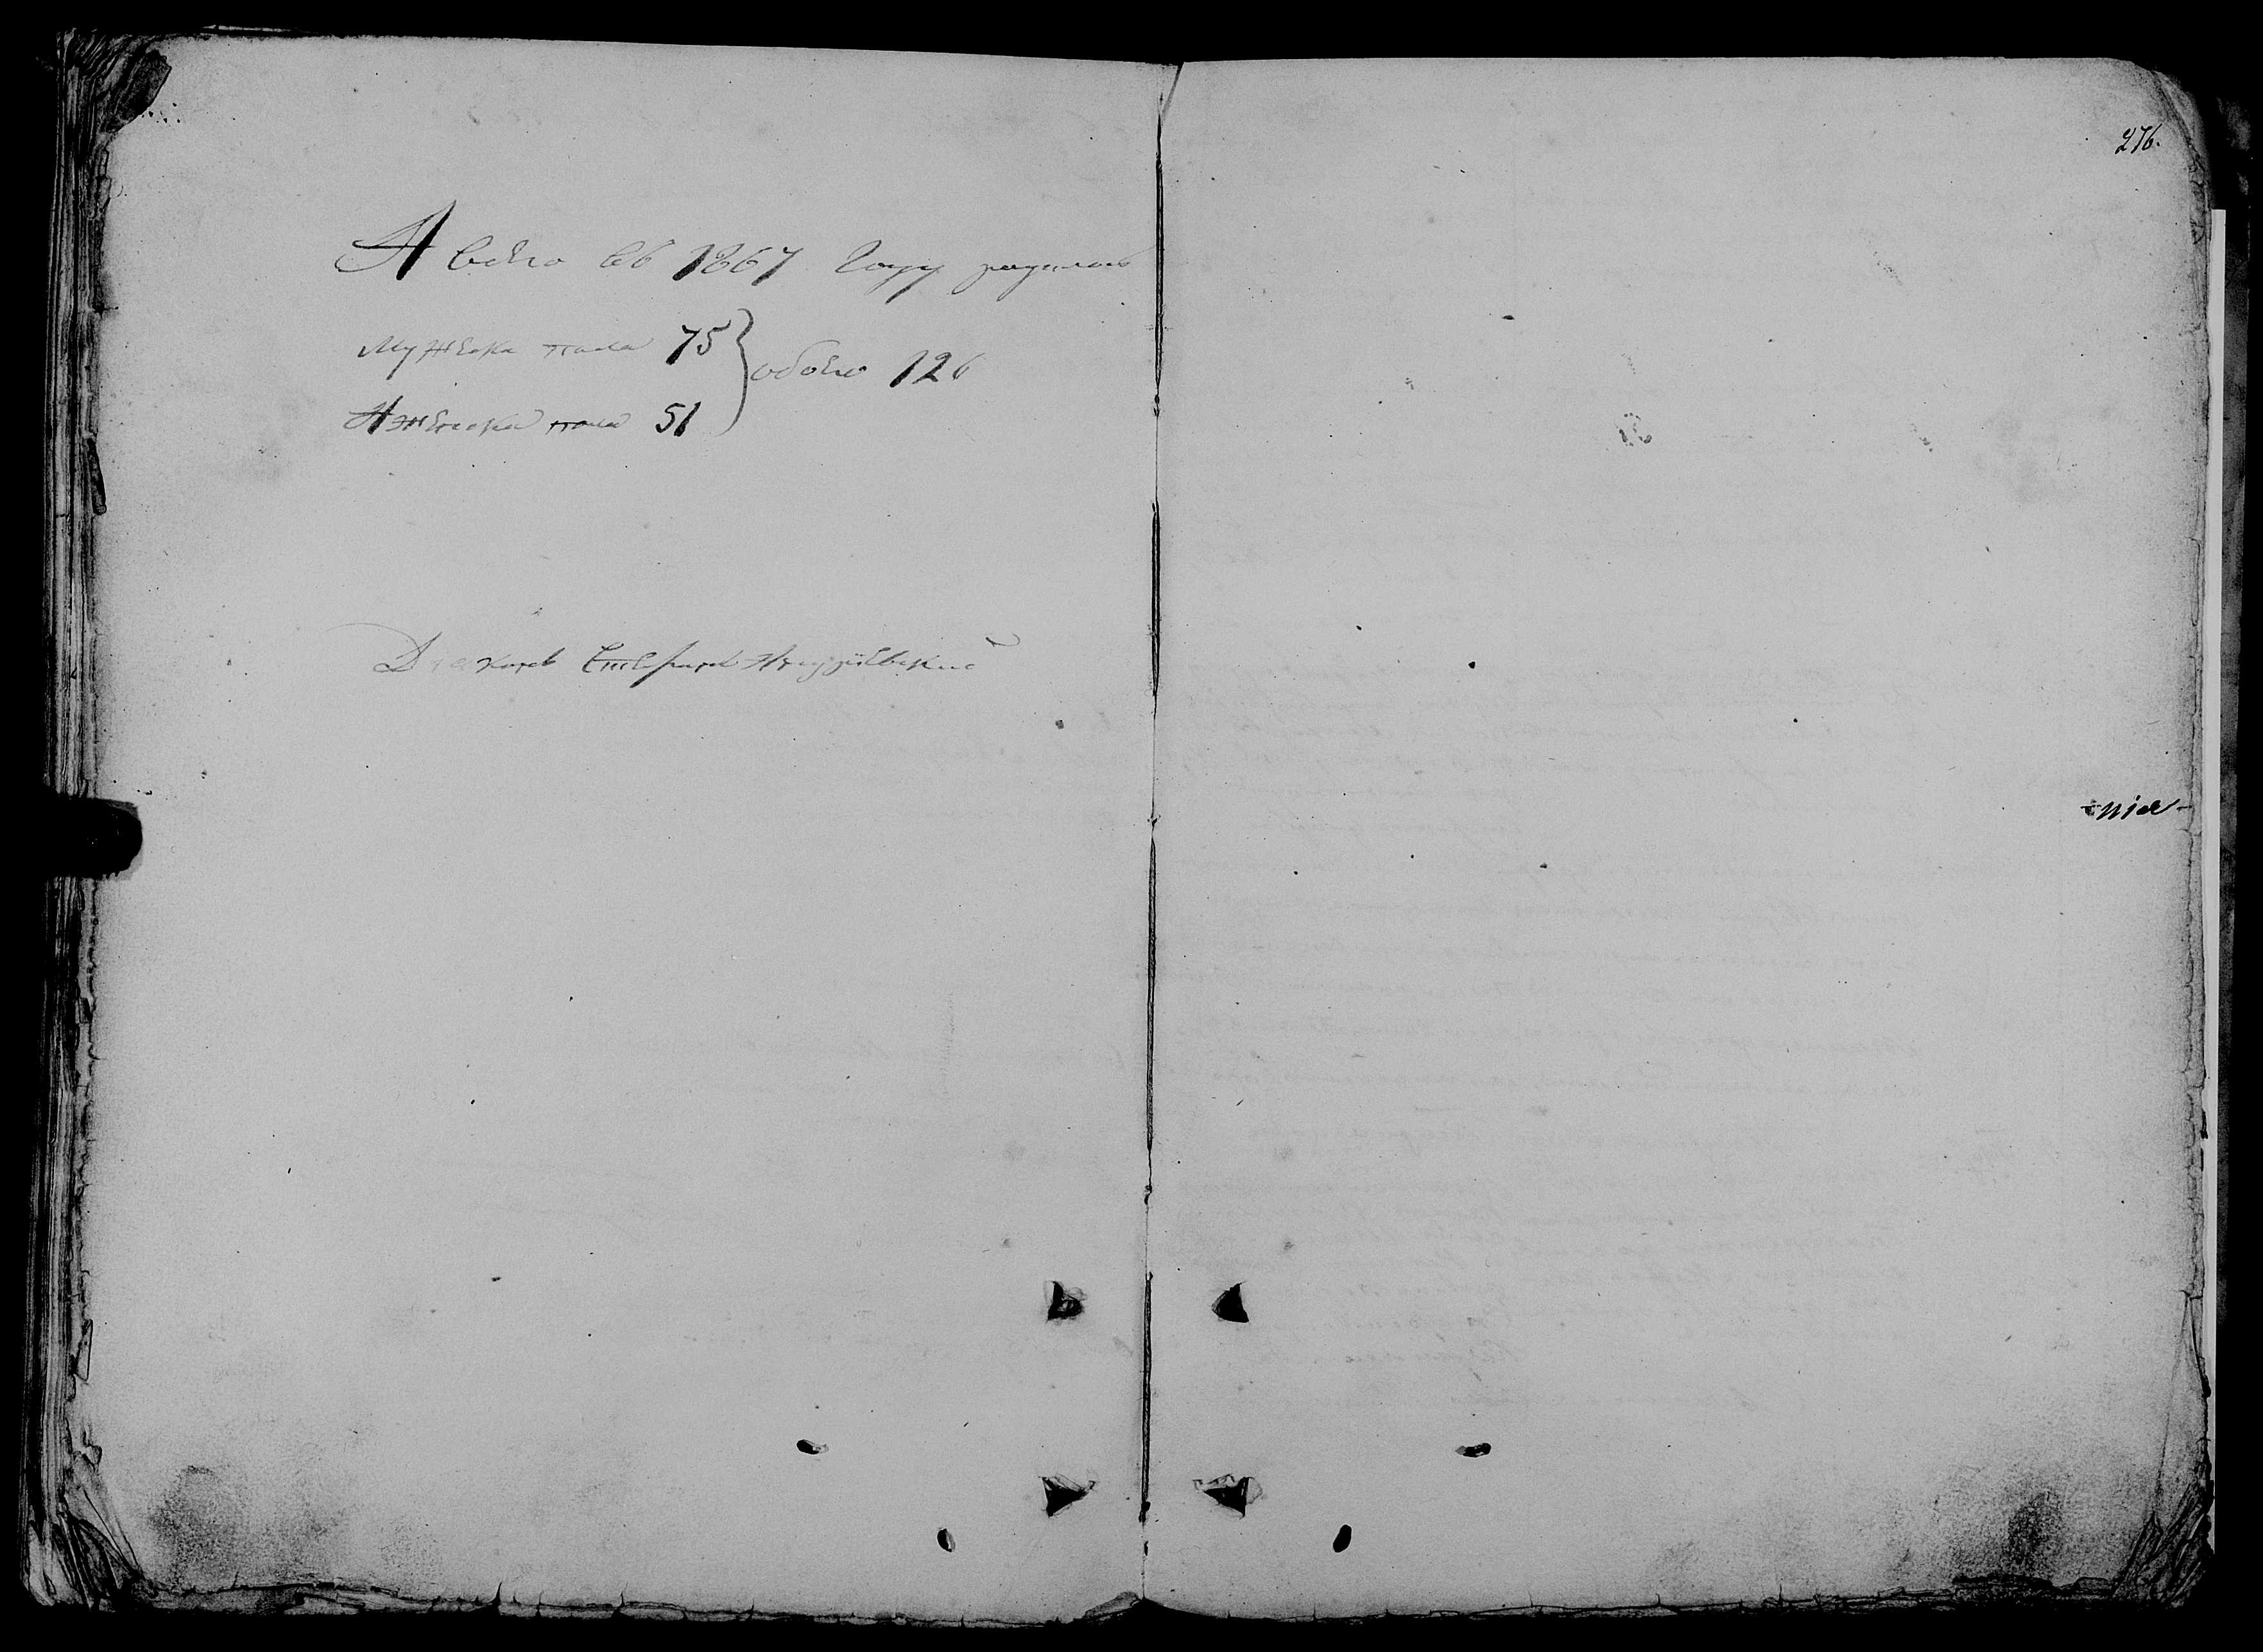 276.
А всего въ 1867 году родилось
Мужеска пола 75
обоего 126
А женска пола 51
Дьяконъ Стефанъ
-нія-